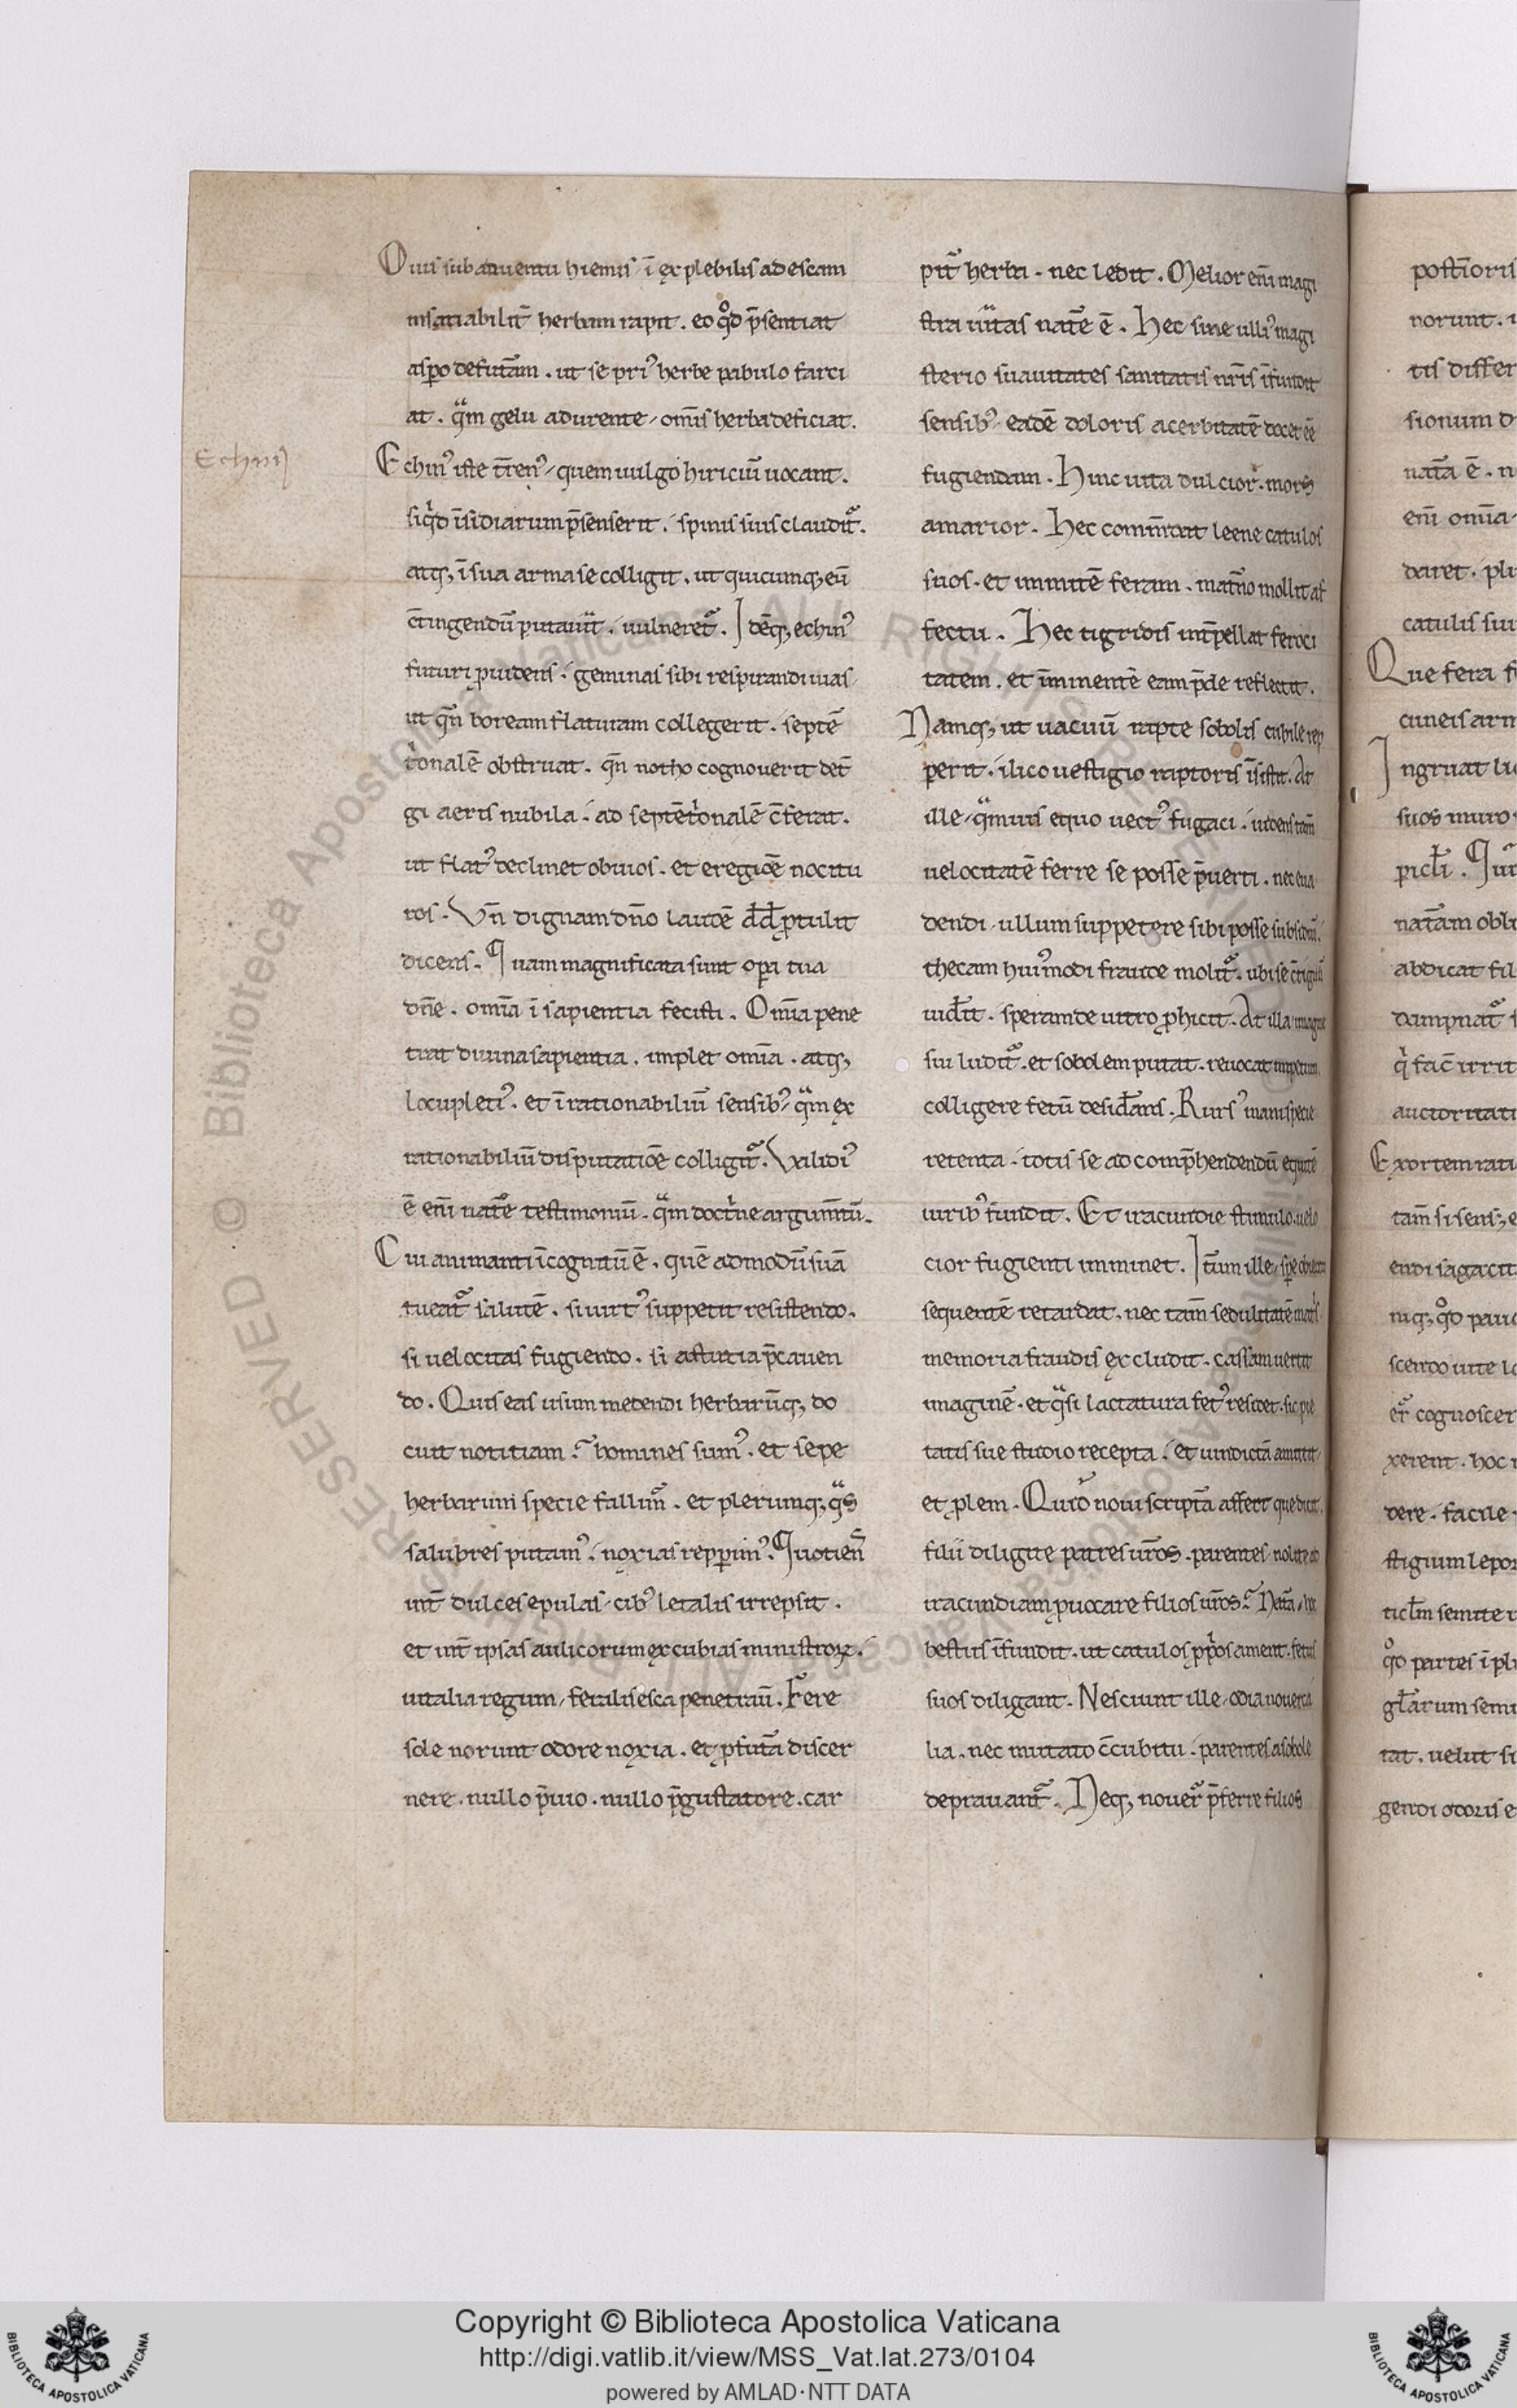 Ouis sub aduentu hiemis. īexplebilis ad escam
insatiabilit̄ herbam rapit. eo qͦd p̄sentiat
asp̱o defutām. ut se priꝰ herbe pabulo farci
at. qͣm gelu adurente, om̄is herba deficiat.
Echinꝰ iste t̄renꝰ, quem uulgo hiriciū uocant.
siqͥd īsidiarum p̄senserit. spinis suis claudit᷑.
atq;, ī sua arma se colligit. ut quicumq;, eū
c̄tingendū putauͥt. uulneret᷑. Idēq;, echinꝰ
futuri ꝓuidens. geminas sibi respirandi uias.
ut qn̄ boream flaturam collegerit. septē
tͥonalē obstruat. qn̄ notho cognouerit det̄
gi aeris nubila. ad septētͥonalē c̄ferat.
ut flatꝰ declinet obuios. et e regiōe nocitu
ros. Vn̄ dignam dn̄o laudē dd̄ ꝓtulit
dicens. Quam magnificata sunt oꝑa tua
dn̄e. om̄ia ī sapientia fecisti. Om̄ia pene
trat diuina sapientia. implet om̄ia. atq;,
locupletiꝰ. et ī rationabiliū sensibꝰ, qͣm ex
rationabiliū disputatiōe colligit᷑. Validiꝰ
ē eni͞ nat᷑e testimoniū. qͣm doctͥne argum̄tū.
Cui animanti īcognitū ē. quē admodū suā
tueat᷑ salutē. si uirtꝰ suppetit resistendo.
si uelocitas fugiendo. si astutia p̄cauen
do. Quis eas usum medendi herbarūq;, do
cuit notitiam. homines sumꝰ. et sepe
herbarum specie fallim᷑. et plerumq;, qͣs
salubres putamꝰ. noxias repꝑimꝰ. Quotien̄s
int̄ dulces epulas. cibꝰ letalis irrepsit.
et int̄ ipsas aulicorum excubias ministroꝝ.
uitalia regum, feralis esca penetrau̅. Fere
sole norunt odore noxia. et ꝓfutūra discer
nere. nullo p̄uio. nullo p̄gustatore. car
pit᷑ herba. nec ledit. Melior eni͞ magi
stra uͥitas nat᷑e ē. Hec sine ulliꝰ magi
sterio suauitates sanitatis nr̄is īfundit
sensibꝰ. eadē doloris acerbitatē docet ēē
fugiendam. Hinc uita dulcior. mors
amarior. Hec com̄dat leene catulos
suos. et immitē feram. mat̄no mollit af
fectu. Hec tigridis int̄pellat feroci
tatem. et īminentē eam p̄de reflectit.
Namq;, ut uacuū rapte sobolis cubile rep
perit. ilico uestigio raptoris īsistit. At
ille, qͣmuis equo uectꝰ fugaci. uidens tam̄
uelocitatē ferre se posse p̄uerti. nec eua
dendi. ullum suppetere sibi posse subsidiū.
thecam huiꝰmodi fraude molit᷑. ubi se c̄tiguū
uid̄it. speram de uitro ꝓhicit. At illa imagine
sui ludit᷑. et sobolem putat. reuocat impetum.
colligere fetū desid̄ans. Rursꝰ inani specie
retenta. totis se ad comp̄hendendū equitē
uiribꝰ fundit. Et iracundie stimulo. uelo
cior fugienti imminet. It̄um ille, spe obiectu
sequentē retardat. nec tam̄ sedulitatē matͥs
memoria fraudis excludit. cassam uertit
imaginē. et qͣsi lactatura fetꝰ residet. sic pie
tatis sue studio recepta. et uindictā amittit,
et ꝓlem. Quid noui scriptūra affert que dicit.
filii diligite patres ur̄os. parentes nolite ad
iracundiam ꝓuocare filios ur̄os. Nat᷑a hoc
bestiis īfundit. ut catulos ꝓpͥos ament. fetus
suos diligant. Nesciunt ille, odia nouerca
lia. nec mutato c̄cubitu. parentes a sobole
deprauant᷑. Neq;, nouer᷑ p̄ferre filios
Echinꝰ
Copyright © Biblioteca Apostolica Vaticana
http://digi.vatlib.it/view/MSS_Vat.lat.273/0104
powered by AMLAD·NTT DATA